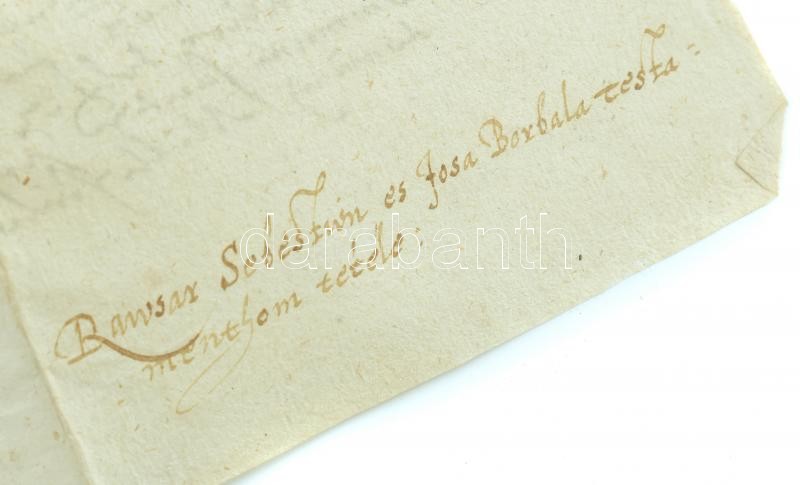 Rawsar Sebestien es Josa Borbala testa=
menthom tetele:
darabanth